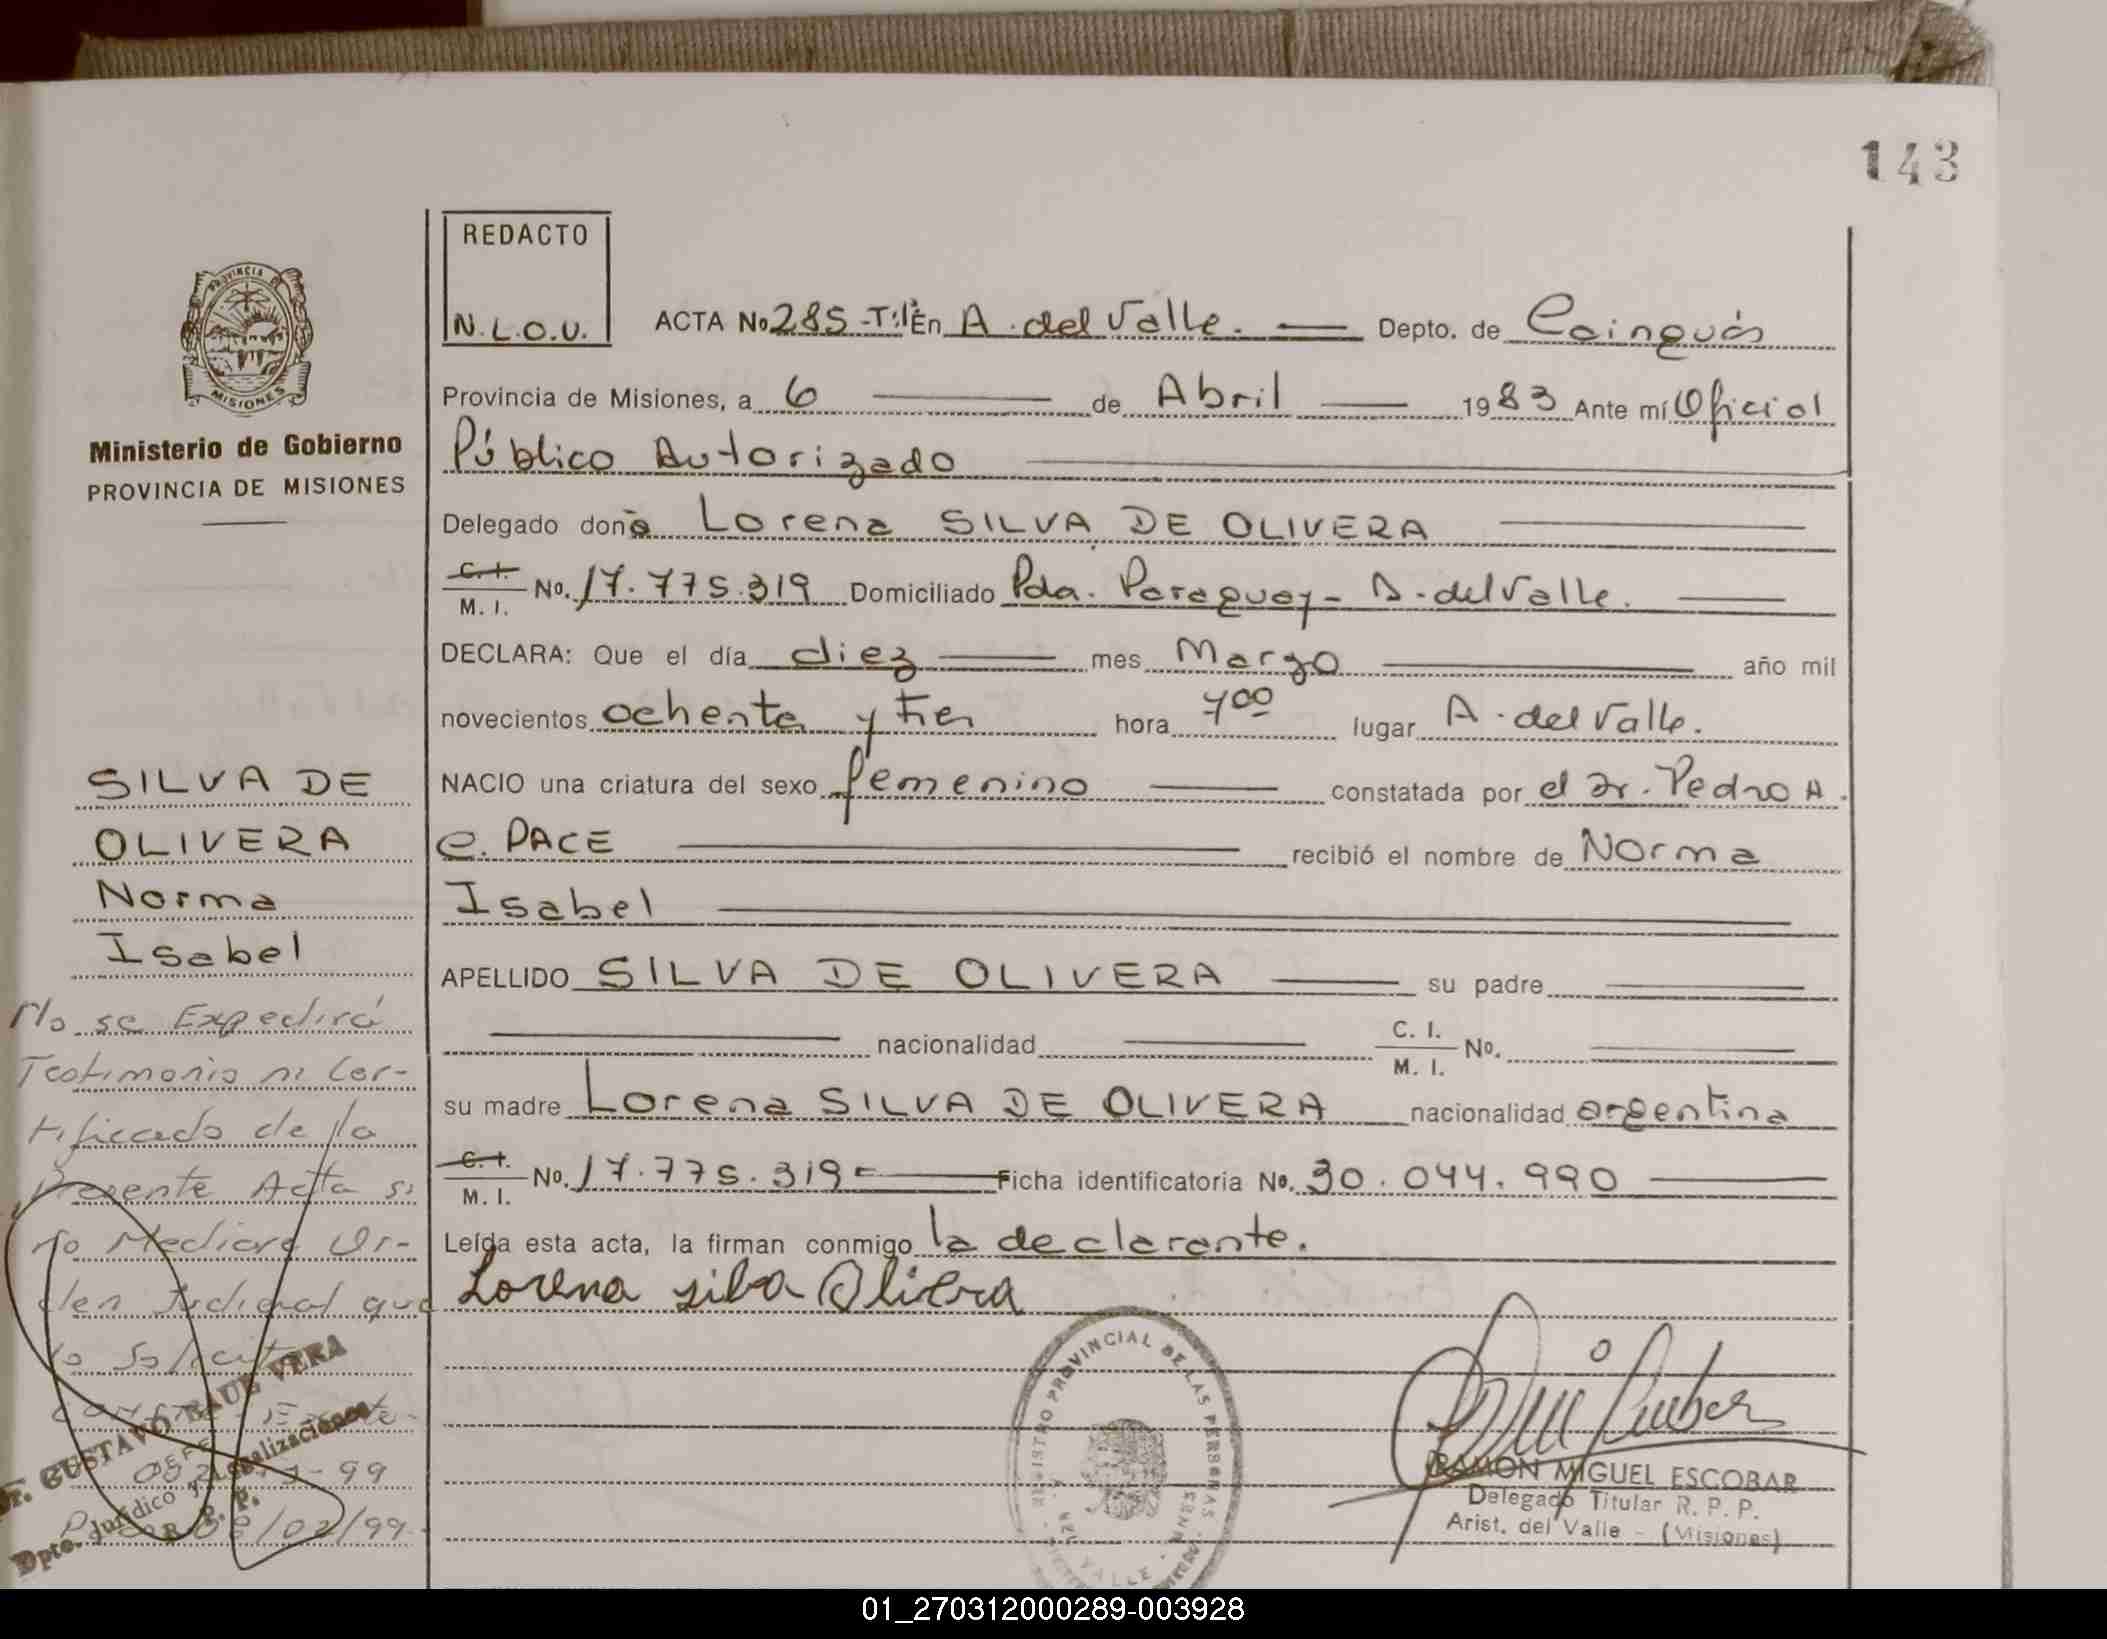 143
REDACTO
N.L.O.U.
ACTA No 285-T:I En A. del Valle. Depto. de Cainguás
Provincia de Misiones, a 6 de Abril 1983 Ante mí Oficial
Público Autorizado
Delegado doña Lorena SILVA DE OLIVERA
C. I.
M. I. No. 17.775.319 Domiciliado Pda. Paraguay - A. del Valle.
DECLARA: Que el día diez mes Marzo año mil
novecientos ochenta y tres hora 7 00 lugar A. del Valle.
NACIO una criatura del sexo femenino constatada por el Dr. Pedro A.
C. PACE recibió el nombre de Norma
Isabel
APELLIDO SILVA DE OLIVERA su padre
nacionalidad C. I. M. I. No.
su madre Lorena SILVA DE OLIVERA nacionalidad argentina
C. I.
M. I. No. 17.775.319 Ficha identificatoria No. 30.044.990
Leída esta acta, la firman conmigo la declarante.
Lorena silba Olivera
PROVINCIA
MISIONES
Ministerio de Gobierno
PROVINCIA DE MISIONES
SILVA DE
OLIVERA
Norma
Isabel
No se Expedirá
Testimonio ni Cer-
tificado de la
Presente Acta si
no Mediare Or-
den Judicial que
lo Solicite
99
/02/99.
Dr. GUSTAVO RAUL VERA
JEFE
Dpto. Jurídico y Legalizaciones
R. P. P.
REGISTRO PROVINCIAL DE LAS PERSONAS
DEL VALLE
RAMON MIGUEL ESCOBAR
Delegado Titular R. P. P.
Arist. del Valle - (Misiones)
01_270312000289-003928